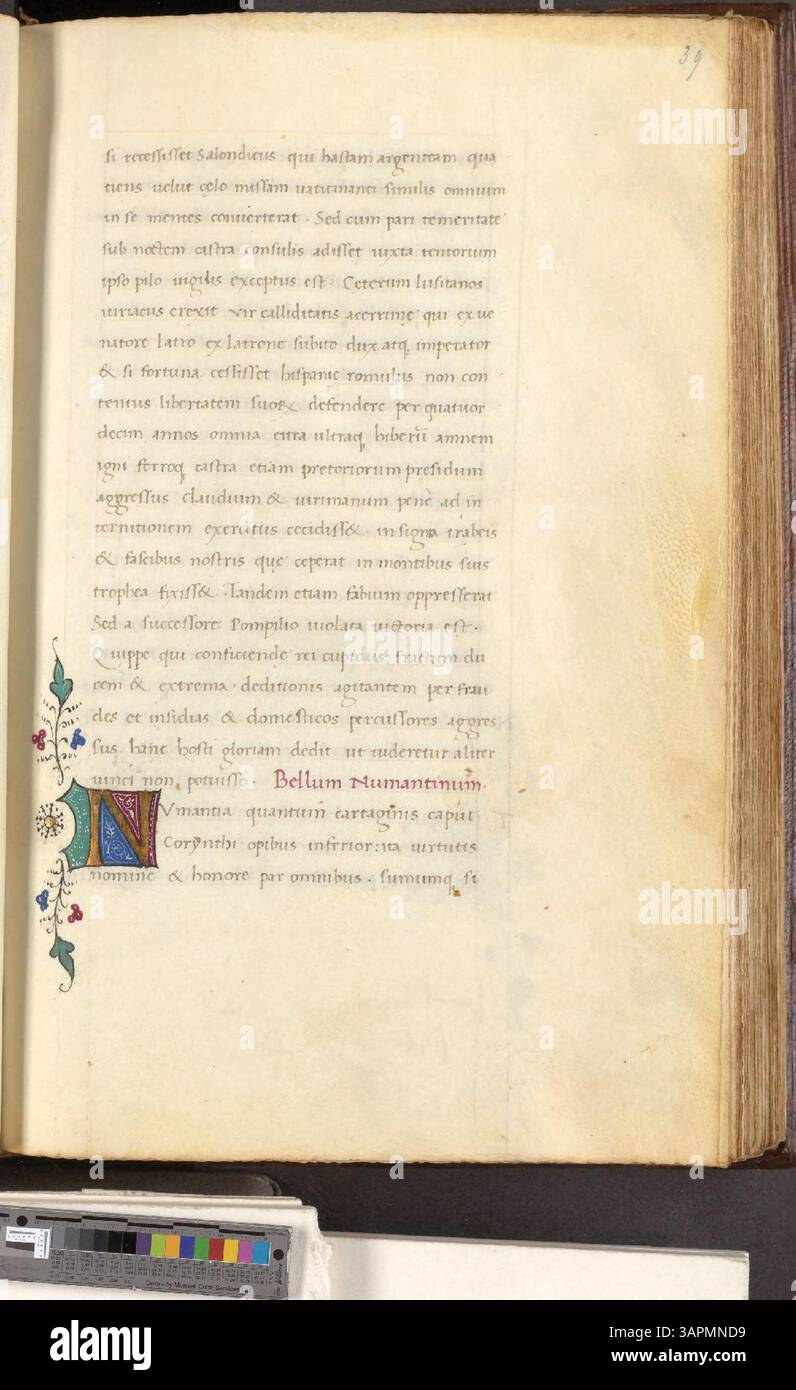 39
si recessisset Salondicus qui hastam argenteam qua
tiens uelut celo missam uaticinanti similis omnium
in se mentes conuerterat . Sed cum pari temeritate
sub noctem castra consulis adisset iuxta tentorium
ipso pilo uigilis exceptus est . Ceterum lusitanos
uiriacus erexit vir calliditatis acerrime qui ex ue
natore latro ex latrone subito dux atq imperator
& si fortuna cessisset hispanie romulus non con
tentus libertatem suoꝝ defendere per quatuor
decim annos omnia citra ultraq hiberū amnem
igni ferroq castra etiam pretoriorum presidum
aggressus claudium & uirimanum pene ad in
ternitionem exercitus cecidiss& insigna trabeis
& fascibus nostris que ceperat in montibus suis
trophea fixiss& . Tandem etiam fabium oppresserat
Sed a successore Pompilio uiolata uictoria est .
Quippe qui conficiende rei cupidus fractum du
cem & extrema deditionis agitantem per frau
des et insidias & domesticos percussores aggres
sus hanc hosti gloriam dedit ut uideretur aliter
uinci non potuisse . Bellum Numantinum .
NVmantia quantum cartaginis caput
Corynthi opibus inferior : ita uirtutis
nomine & honore par omnibus . sumumq si
alamy
alamy
alamy
alamy
Image ID: 3APMND9
www.alamy.com